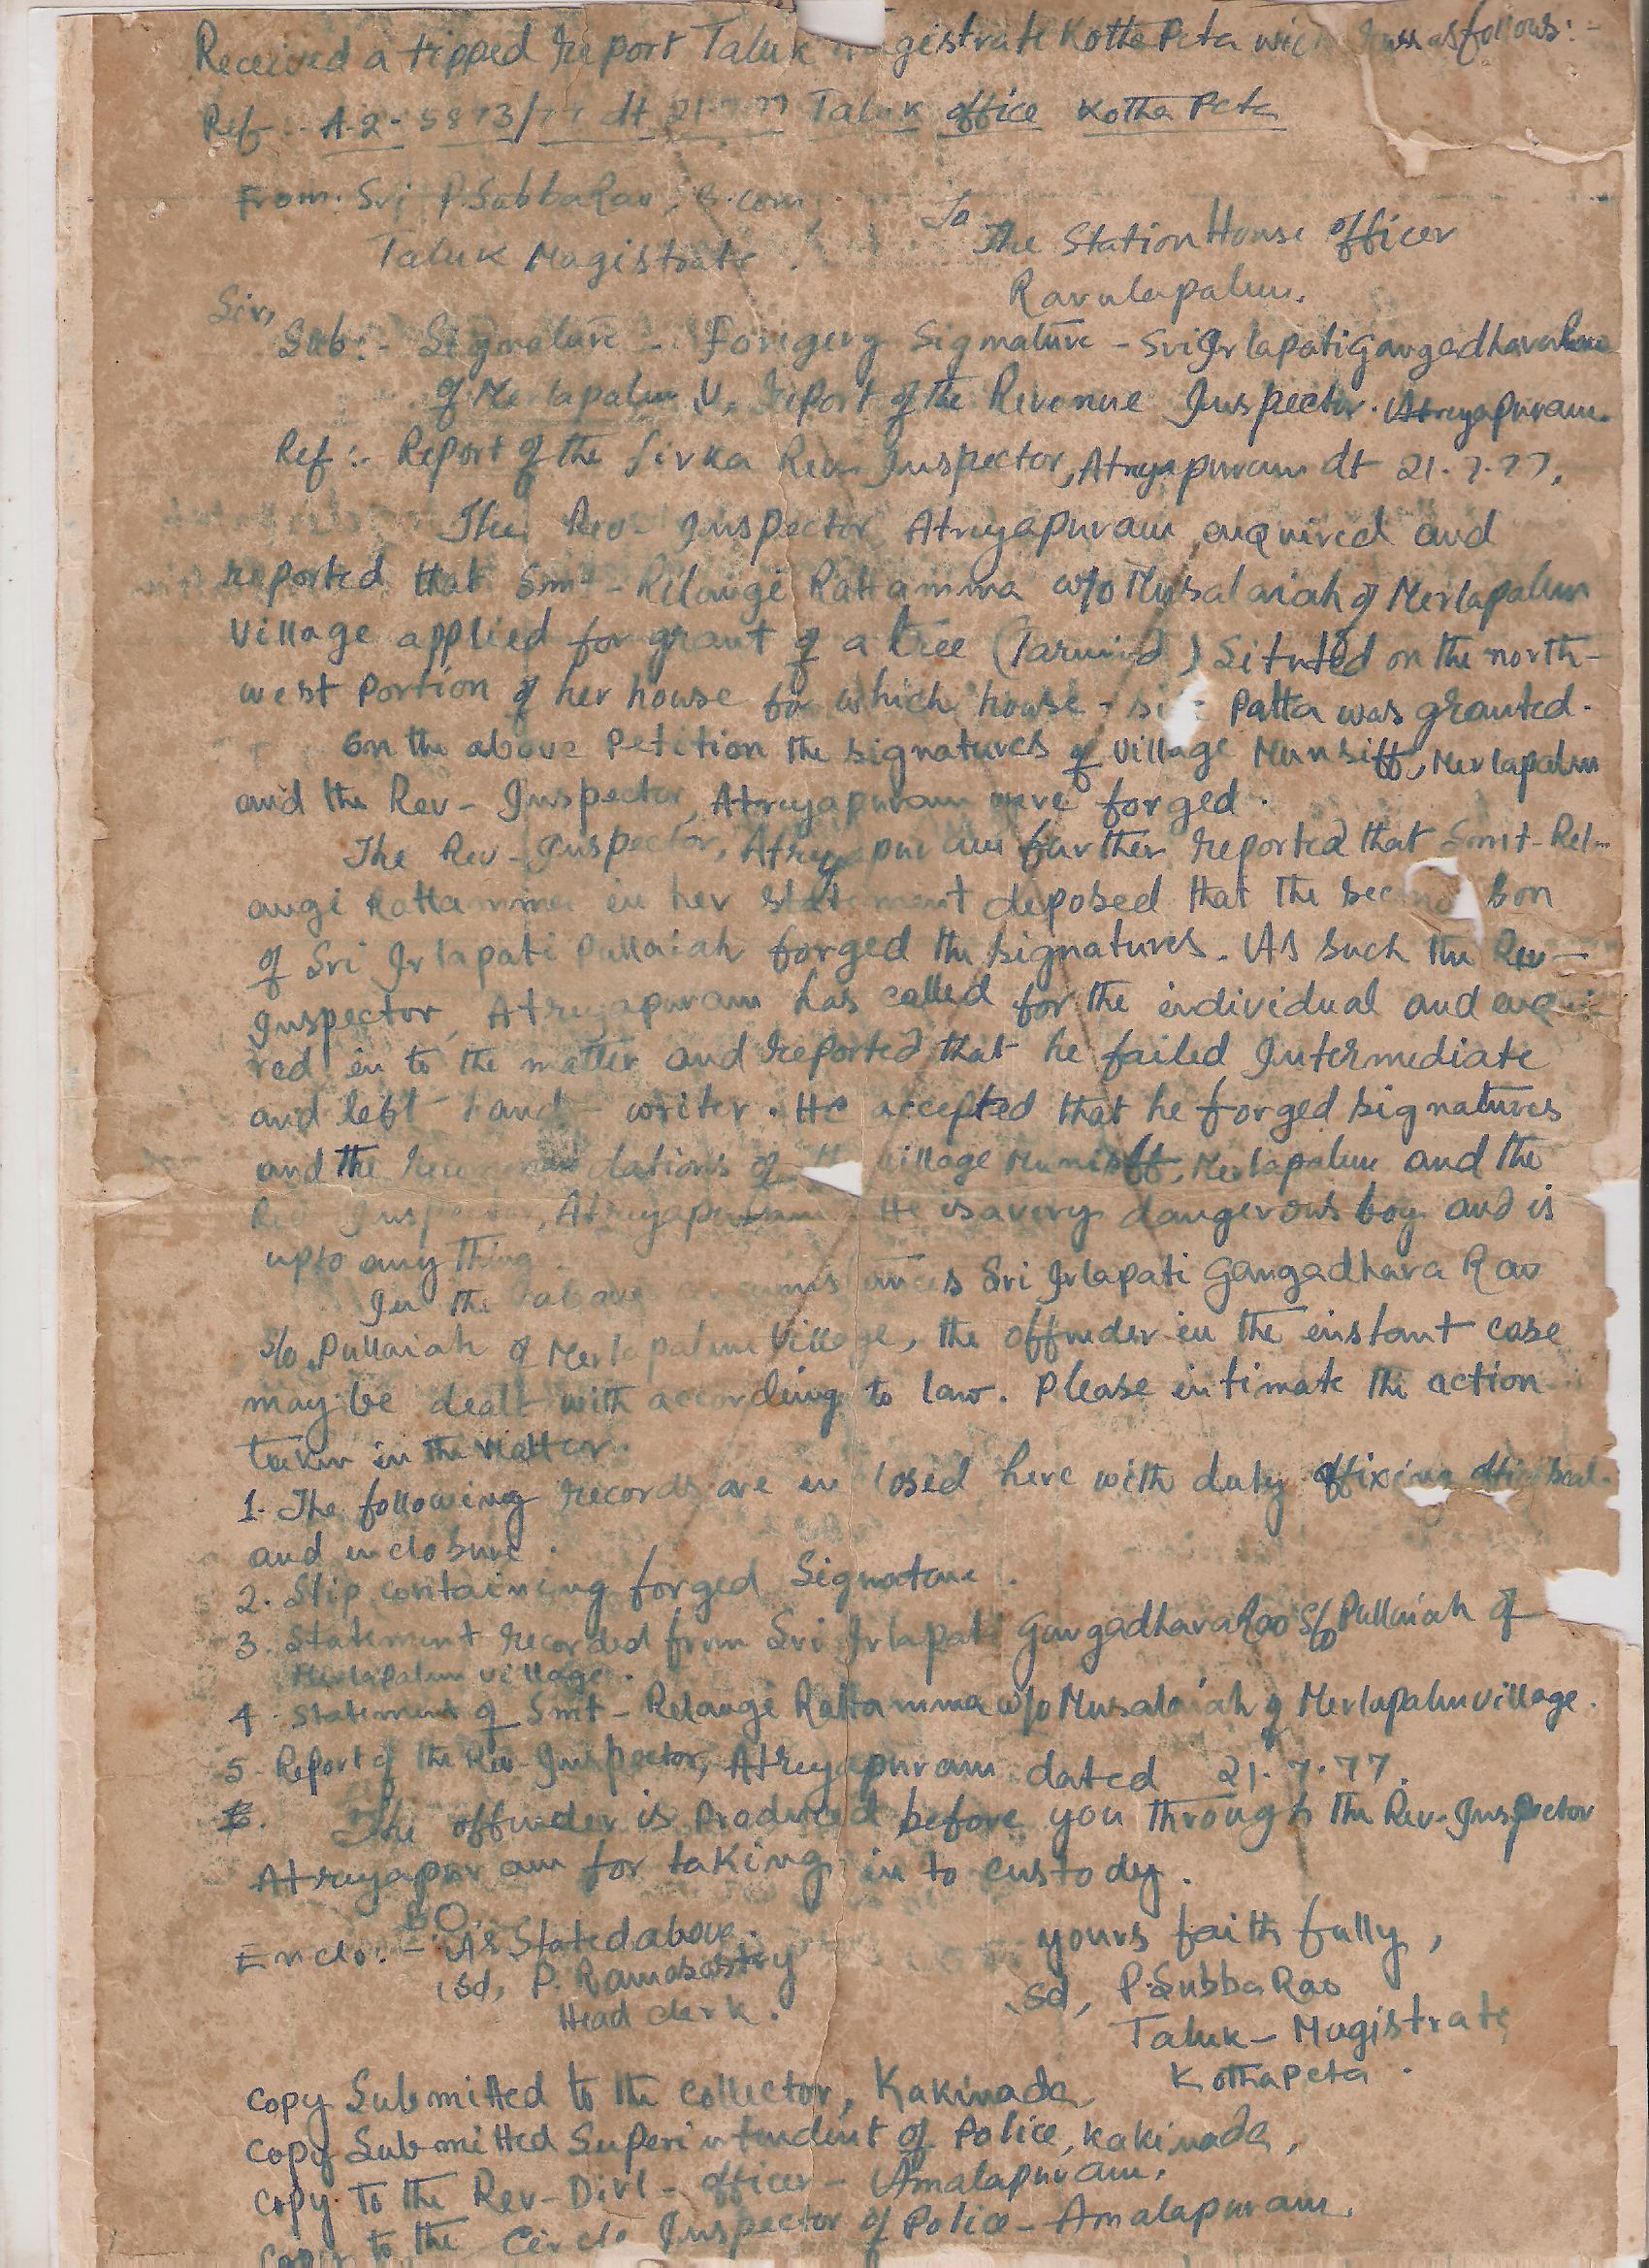 Received a tipped report Taluk Magistrate Kotha Peta as follows:-
Ref:- A.2- 5873/77 dt 21.7.77 Taluk office Kotha Peta
From: Sri P. Subba Rao, B.com
To
The Station House officer
Taluk Magistrate.
Ravulapalem.
Sir,
Sub:- Signature - Foregerg Signature - Sri Irlapati Gangadhara
of Merlapalem V, report of the Revenue Inspector. Atreyapuram.
Ref:- Report of the firka Rev Inspector, Atreyapuram dt 21.7.77.
The Rev- Inspector Atreyapuram enquired and
reported that Smt- Relangi Rattamma w/o Musalaiah of Merlapalem
Village applied for grant of a tree (Tarmind) Situted on the north-
west portion of her house for which house - site Patta was granted.
on the above Petition the signatures of village Munsiff, Merlapalem
and the Rev- Inspector, Atreyapuram were forged.
The Rev- Inspector, Atreyapuram further reported that Smt- Rel-
angi Rattamma in her statement deposed that the second son
of Sri Irlapati Pullaiah forged the signatures. As such the Rev-
Inspector, Atreyapuram has called for the individual and enqui-
red in to the matter and reported that he failed Intermediate
and left hand - writer. He accepted that he forged signatures
and the recommendations of the village Munisff, Merlapalem and the
Rev Inspector, Atreyapuram. He is a very dangerous boy and is
upto any thing.
In the above circumstances Sri Irlapati Gangadhara Rao
S/o Pullaiah of Merlapalem Village, the offender in the instant case
may be dealt with according to law. Please intimate the action
taken in the matter.
1. The following records are enclosed here with duly affixing seal.
and enclosure.
2. Slip containing forged Signature.
3. Statement recorded from Sri Irlapati Gangadhara Rao S/o Pullaiah of
Merlapalem village.
4. Statement of Smt- Relangi Rattamma w/o Musalaiah of Merlapalem village.
5. Report of the Rev- Inspector, Atreyapuram dated 21.7.77.
6. The offender is Produced before you through the Rev- Inspector
Atreyapuram for taking in to custody.
Enclo:- As Stated above.
yours faithfully,
Sd, P. Ramasastry
Sd, P. Subba Rao
Head clerk.
Taluk- Magistrate
Kothapeta.
Copy Submitted to the Collector, Kakinada
Copy Submitted Superintendent of Police, Kakinada,
Copy To the Rev- Divl- officer- Amalapuram.
Copy to the Circle Inspector of Police- Amalapuram.